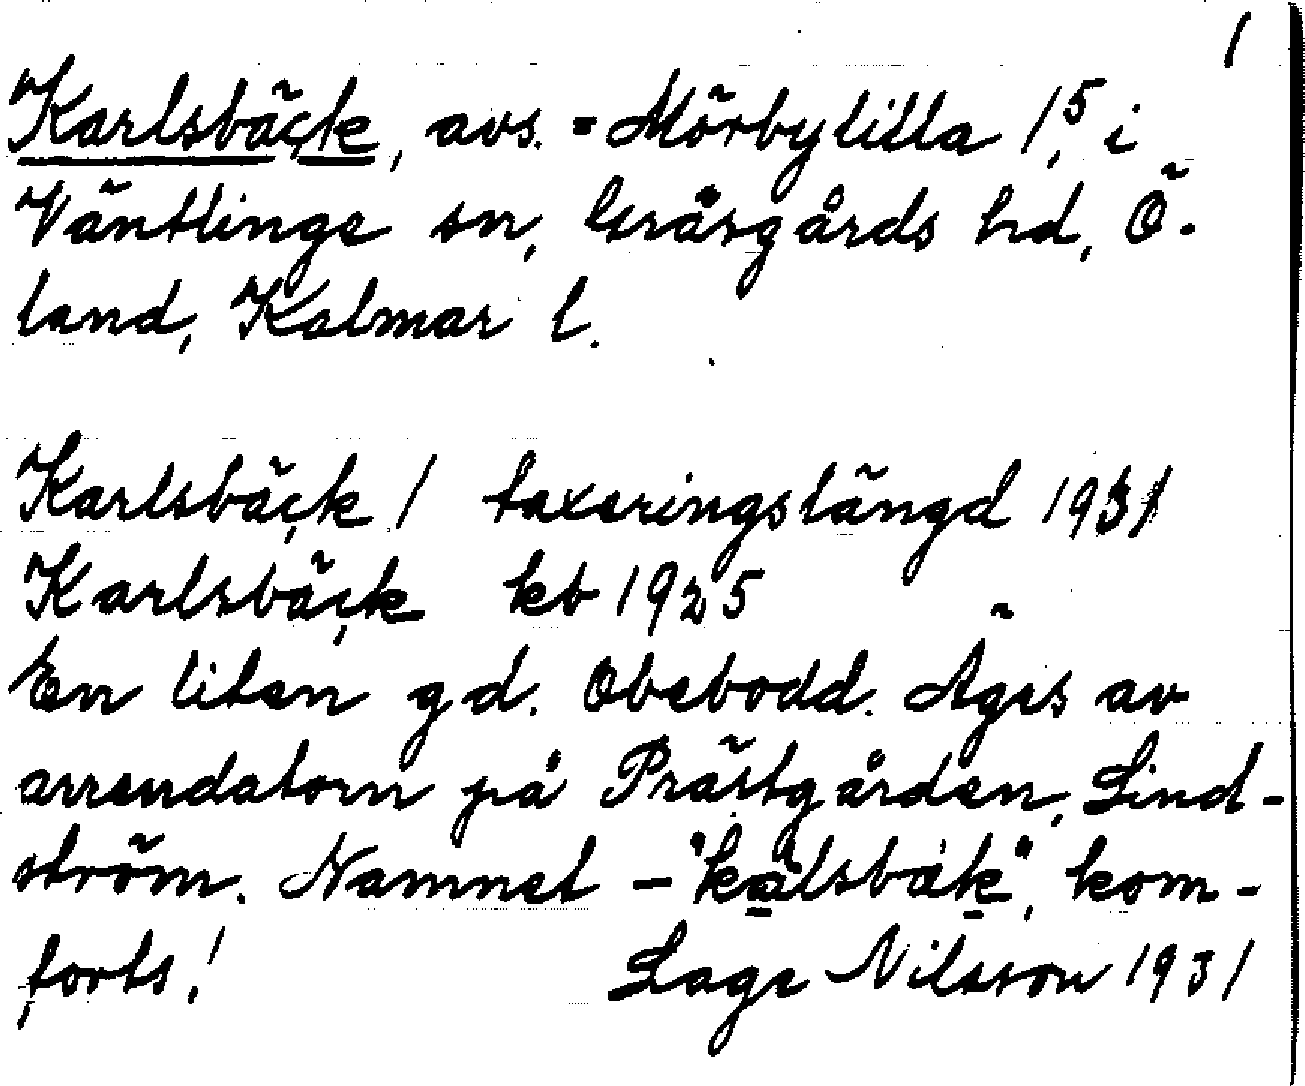 1
Karlsbäck, avs. = Mörbylilla 1,5 i
Ventlinge sn, Gräsgårds hd, Ö-
land, Kalmar l.
Karlsbäck / taxeringslängd 1931
Karlsbäck kb 1925
En liten gd. Obebodd. Äges av
arrendatorn på Prästgården, Lind-
ström. Namnet – "kalsbäk", kom-
forts! Lage Nilsson 1931